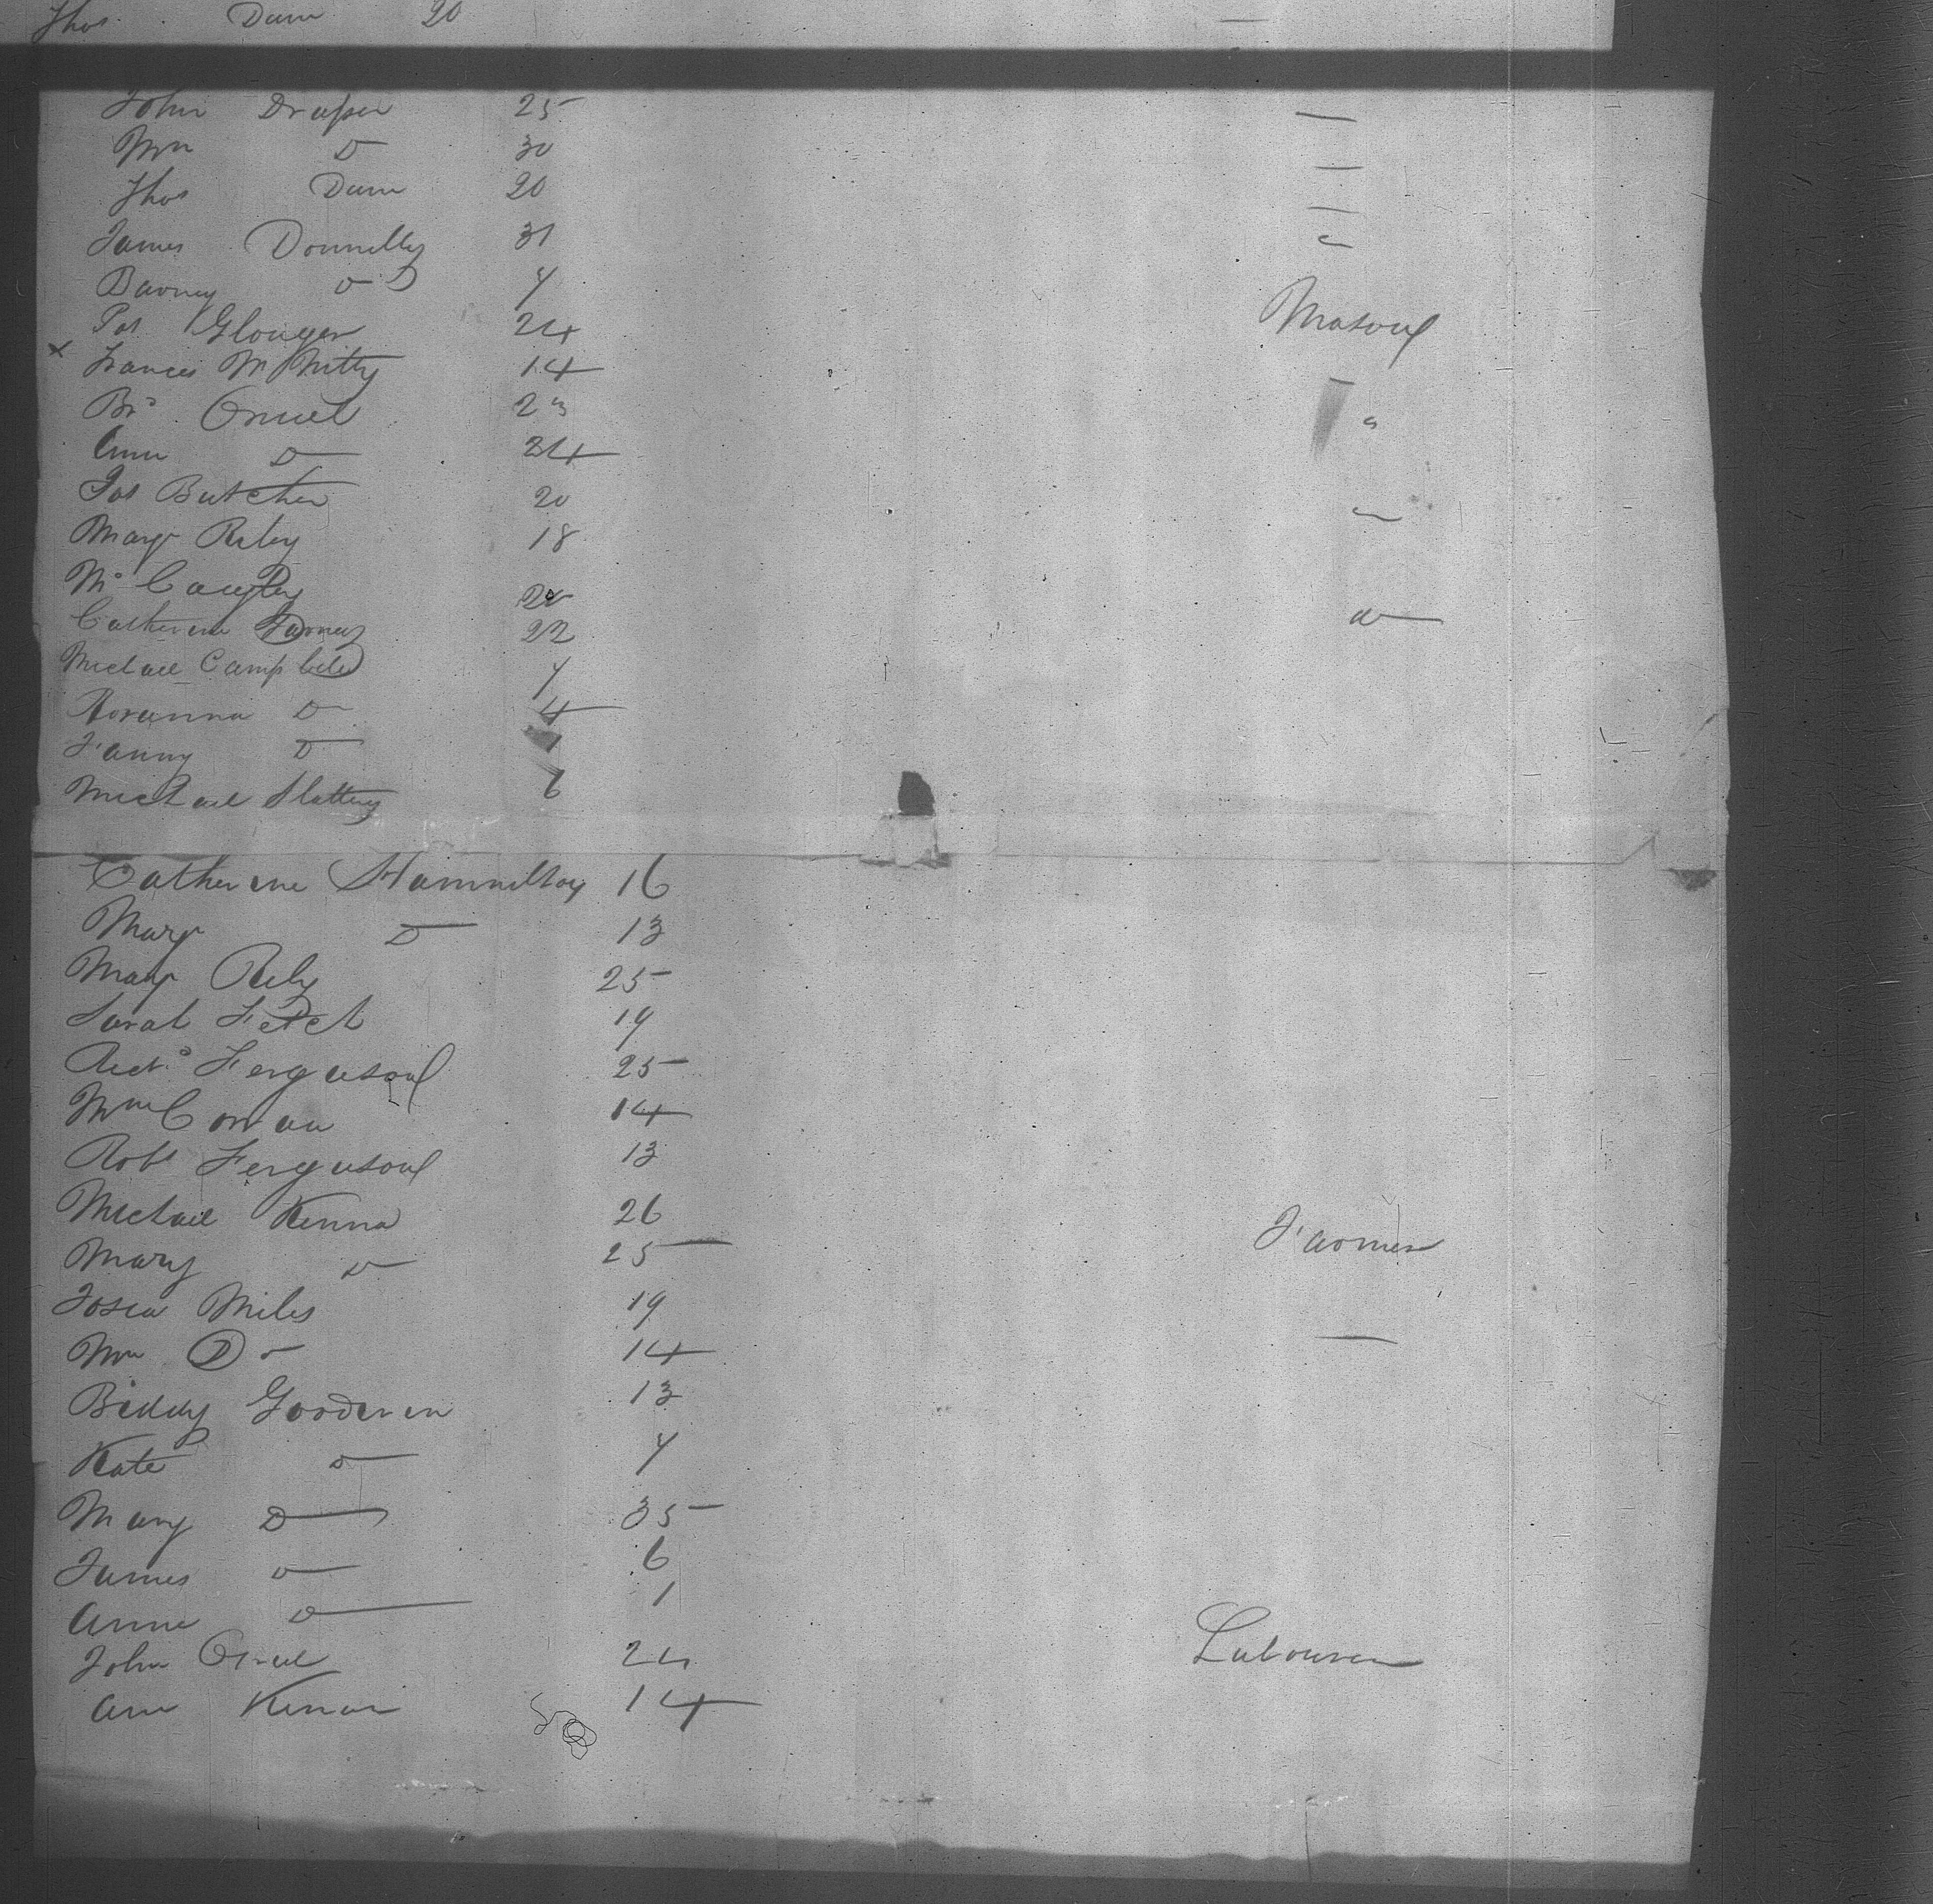 Thos Dunn 20 —
John Draper 25 —
Wm D 30 —
Thos Dunn 20 —
James Donnelly 31
Barney Do 7
Pat Glougar 24 Mason
x Francis McNitty 14 —
Br Oniel 23 "
Ann D 24
Pat Butcher 20 —
Mary Riley 18
22 Do
Catherine 22
Michael Campbell 7
Rosanna D 4
Fanny D 1
Michael Slattery 6
Catherine Hammilton 16
Mary D 13
Mary Rily 25
Sarah 19
Ferguson 25
Wm Conan 14
Robt Ferguson 13
Michael Kenna 26
Mary D 25 Farmer
Miles 19
Wm Do 14 —
Biddy Gooderin 13
Kate D 7
Mary D 35
James D 6
Anne D 1
John Oniel 24 Labourer
Ann 14